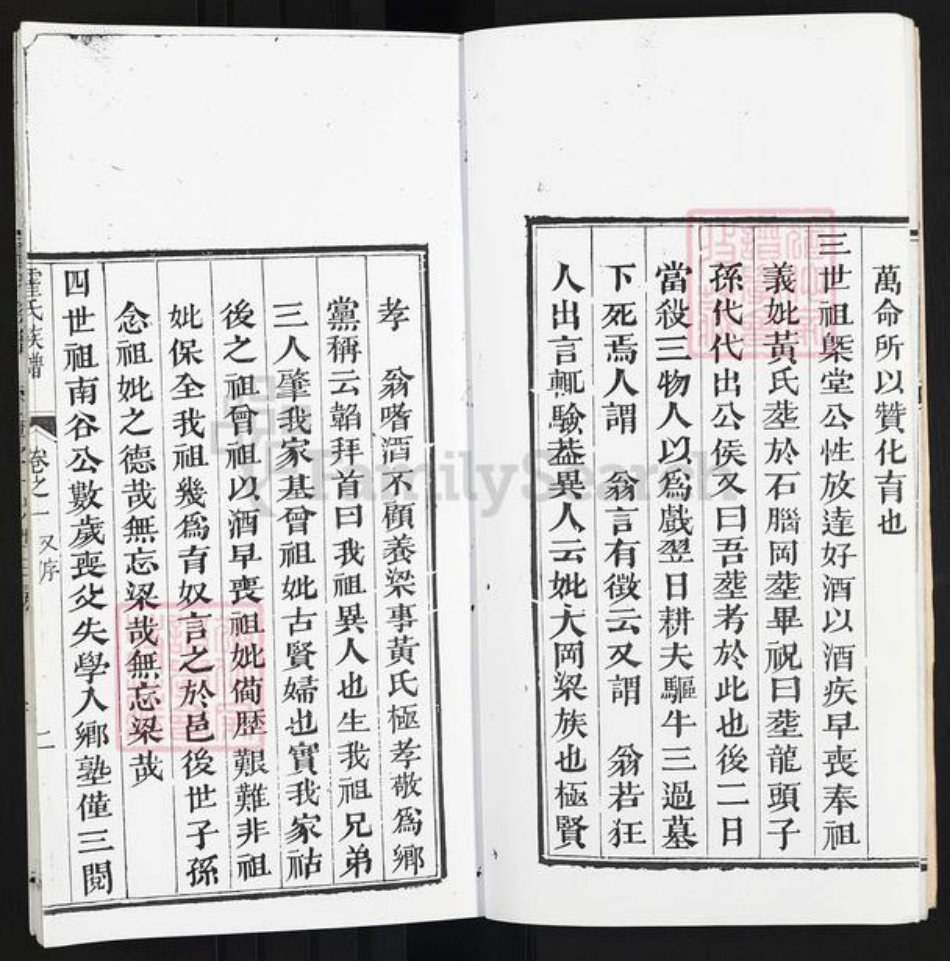 萬命所以贊化育也
三世祖槩堂公性放達好酒以酒疾早喪奉祖
義妣黃氏塟於石腦岡塟畢祝曰塟龍頭子
孫代代出公侯又曰吾塟考於此也後二日
當殺三物人以爲戲翌日耕夫驅牛三過墓
下死焉人謂 翁言有徵云又謂 翁若狂
人出言輒驗葢異人云妣大岡梁族也極賢
孝 翁嗜酒不顧養梁事黃氏極孝敬爲鄉
黨稱云韜拜首曰我祖異人也生我祖兄弟
三人肇我家基曾祖妣古賢婦也實我家祜
後之祖曾祖以酒早喪祖妣僃歷艱難非祖
妣保全我祖幾爲育奴言之於邑後世子孫
念祖妣之德哉無忘梁哉無忘梁哉
四世祖南谷公數歲喪父失學入鄉塾僅三閱
霍氏族譜
卷之一 又序
二
FamilySearch